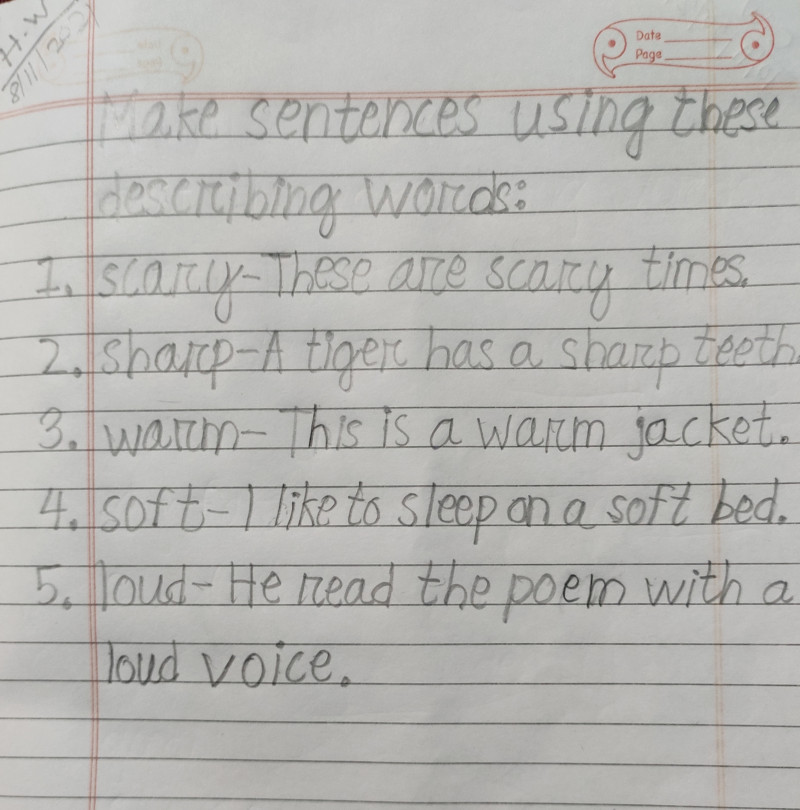 H.W
Date
Page
Make sentences using these
describing words:
1. scary-These are scary times.
2. sharp-A tiger has a sharp teeth.
3. warm-This is a warm jacket.
4. soft-I like to sleep on a soft bed.
5. loud-He read the poem with a
loud voice.